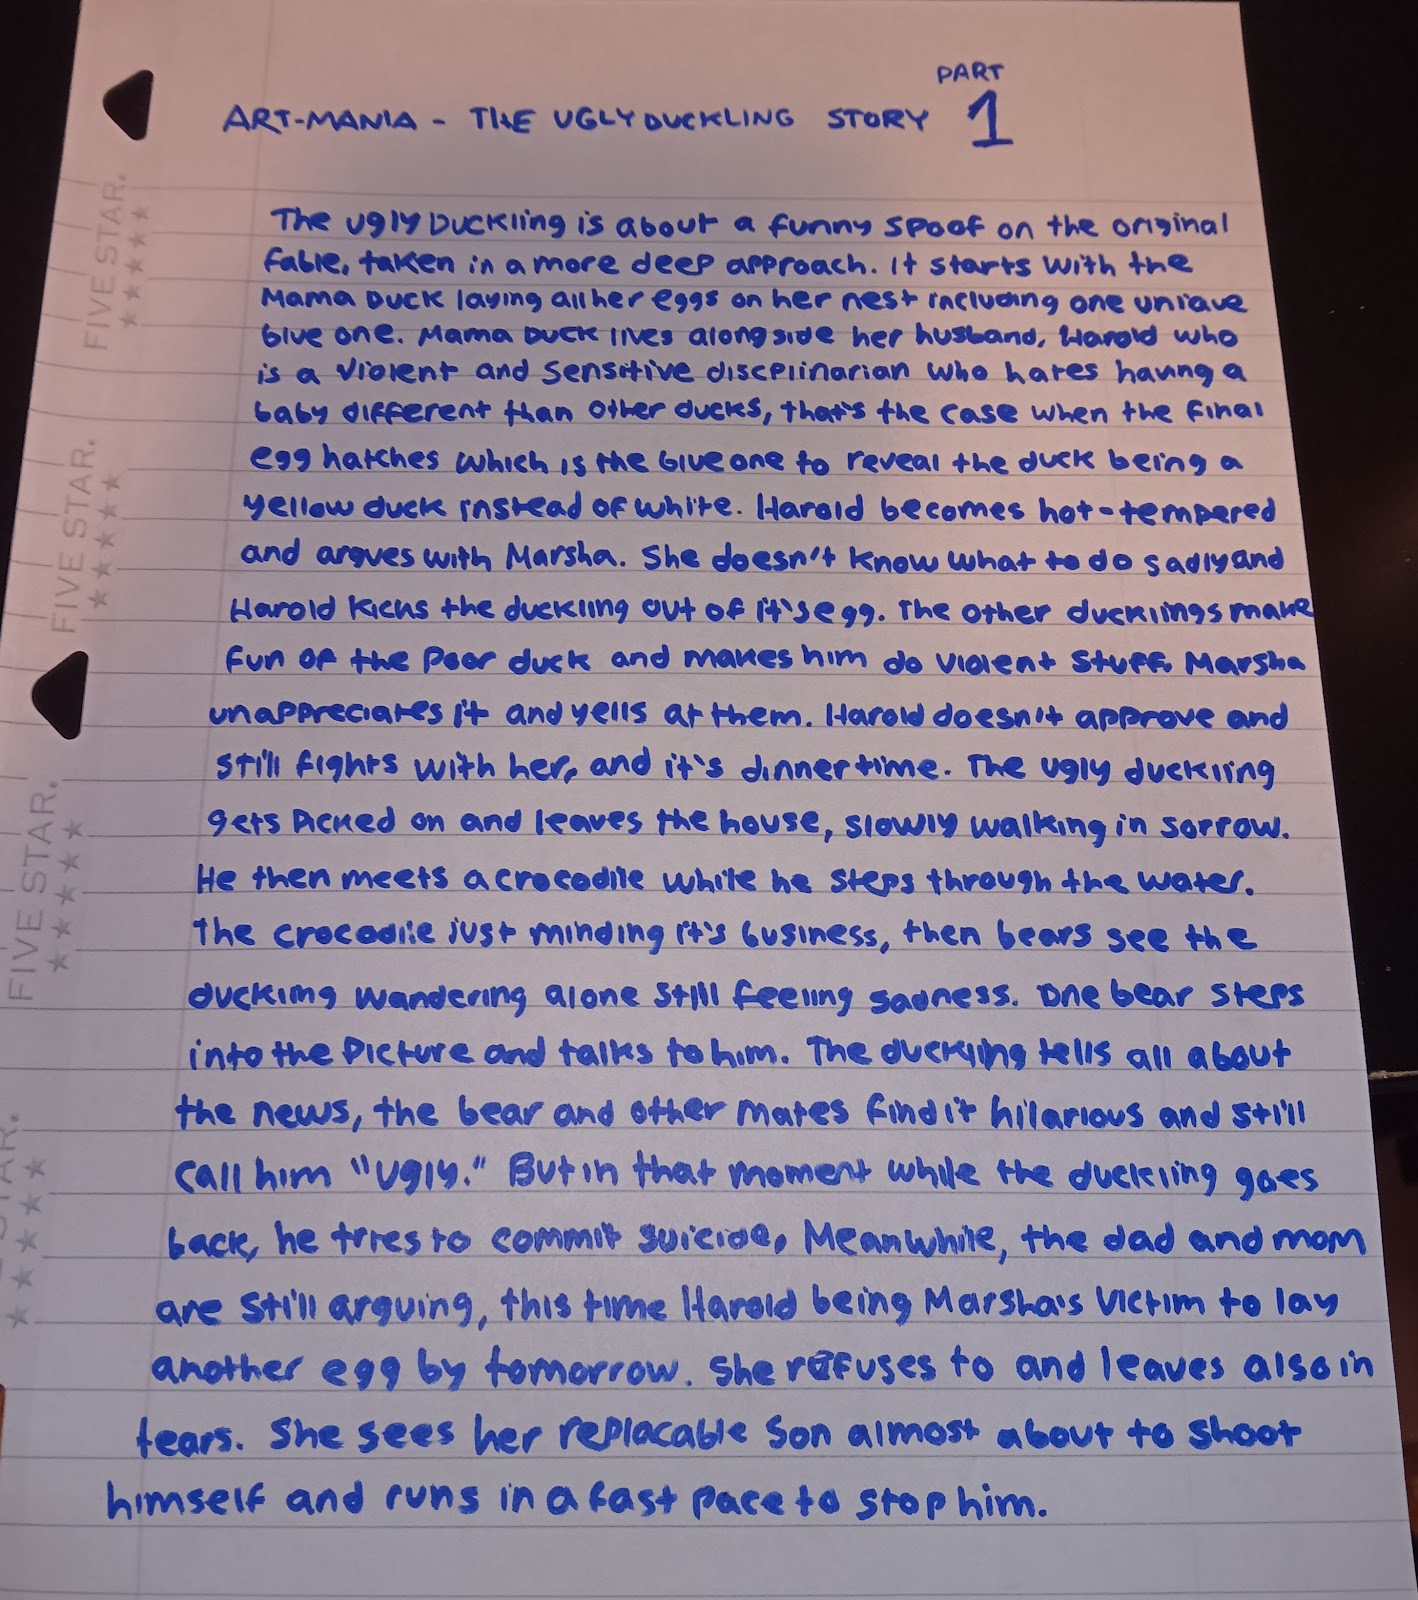 PART
ART-MANIA - THE UGLY DUCKLING STORY 1
The Ugly Duckling is about a funny spoof on the original
fable, taken in a more deep approach. It starts with the
Mama Duck laying all her eggs on her nest including one unique
blue one. Mama Duck lives alongside her husband, Harold who
is a violent and sensitive discplinarian who hates having a
baby different than other ducks, that's the case when the final
egg hatches which is the blue one to reveal the duck being a
yellow duck instead of white. Harold becomes hot-tempered
and argues with Marsha. She doesn't know what to do sadly and
Harold kicks the duckling out of it's egg. The other ducklings make
fun of the poor duck and makes him do violent stuff. Marsha
unappreciates it and yells at them. Harold doesn't approve and
still fights with her, and it's dinnertime. The ugly duckling
gets picked on and leaves the house, slowly walking in sorrow.
He then meets a crocodile while he steps through the water.
The crocodile just minding it's business, then bears see the
duckling wandering alone still feeling sadness. One bear steps
into the picture and talks to him. The duckling tells all about
the news, the bear and other mates find it hilarious and still
call him "ugly." But in that moment while the duckling goes
back, he tries to commit suicide. Meanwhile, the dad and mom
are still arguing, this time Harold being Marsha's victim to lay
another egg by tomorrow. She refuses to and leaves also in
tears. She sees her replacable son almost about to shoot
himself and runs in a fast pace to stop him.
FIVE STAR.
FIVE STAR.
FIVE STAR.
STAR.